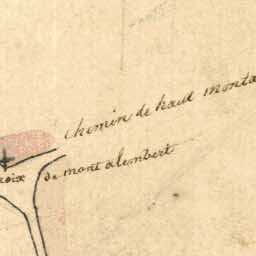 Chemin de haut monta
roix de mont alembert